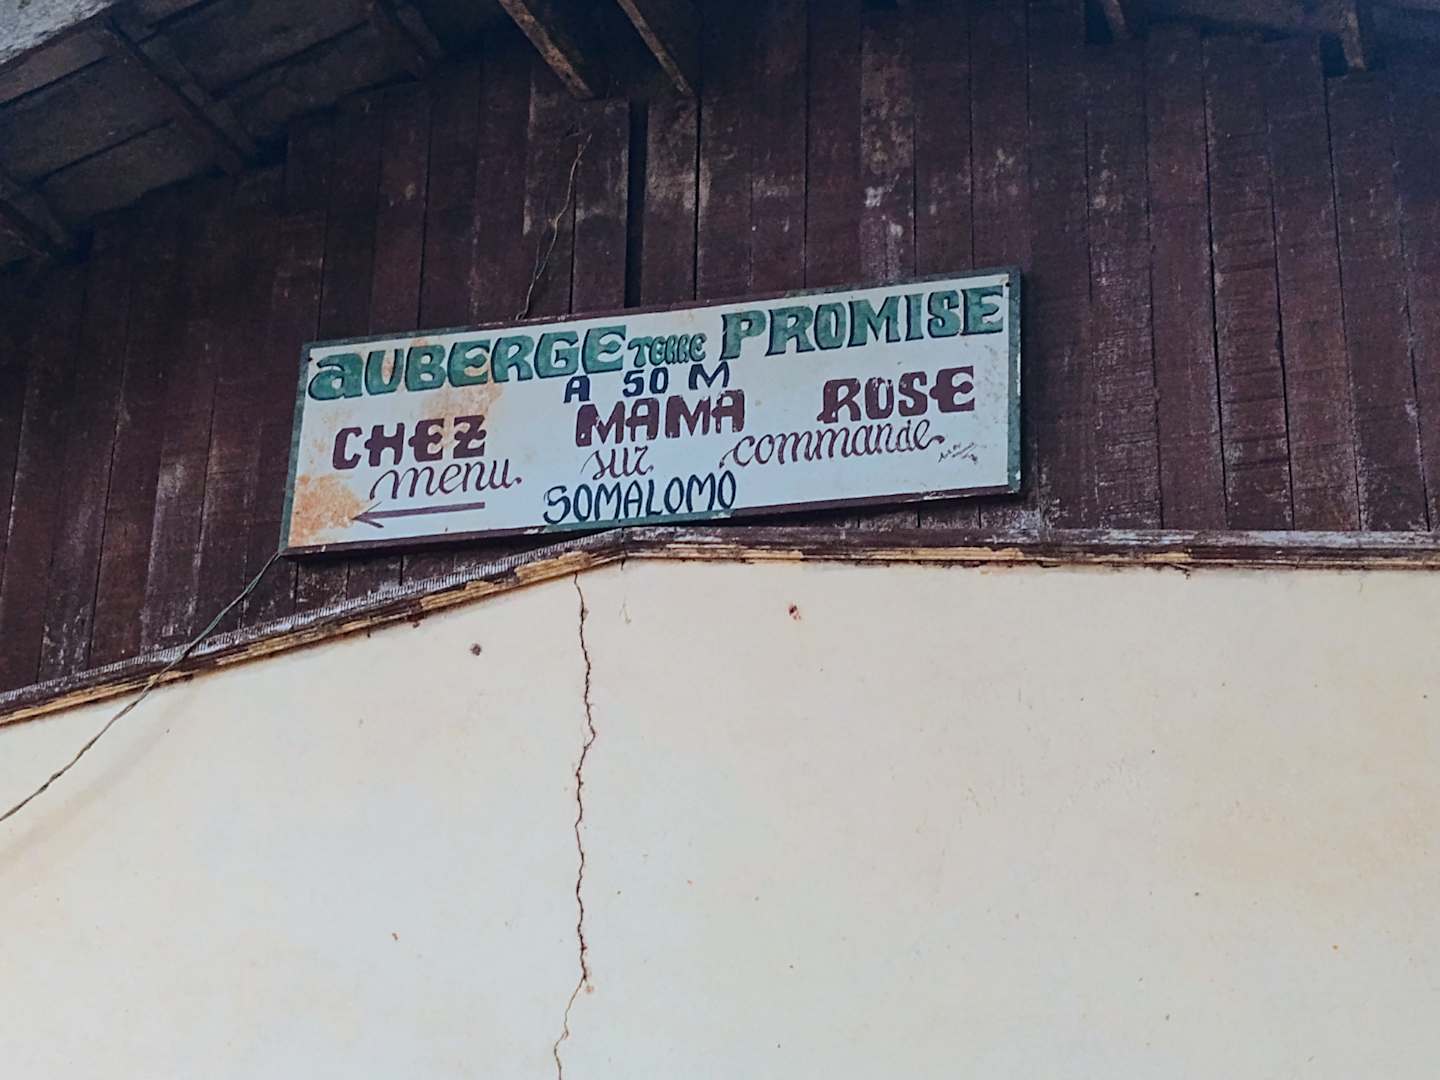 AUBERGE TERRE PROMISE
A 50 M
CHEZ MAMA ROSE
menu sur commande
SOMALOMO